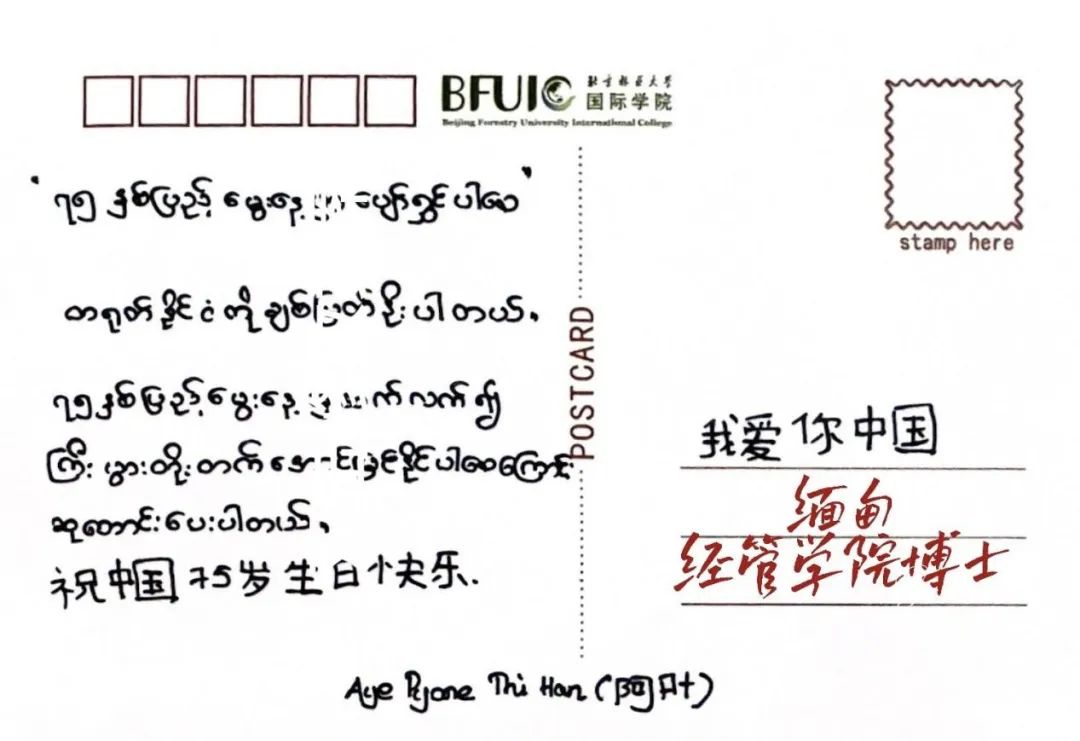 BFUIC
北京林业大学
国际学院
Beijing Forestry University International College
"၇၅ နှစ်ပြည့် မွေးနေ့ ပျော်ရွှင်ပါစေ"
တရုတ်နိုင်ငံကို ချစ်မြတ်နိုးပါတယ်။
၇၅နှစ်ပြည့် မွေးနေ့ လက်၍
ကြီးပွားတိုးတက် နိုင်ပါစေကြောင်း
ဆုတောင်းပေးပါတယ်။
祝中国75岁生日快乐.
POSTCARD
stamp here
我爱你中国
缅甸
经管学院博士
Aye Pyone Thi Han (阿叶)